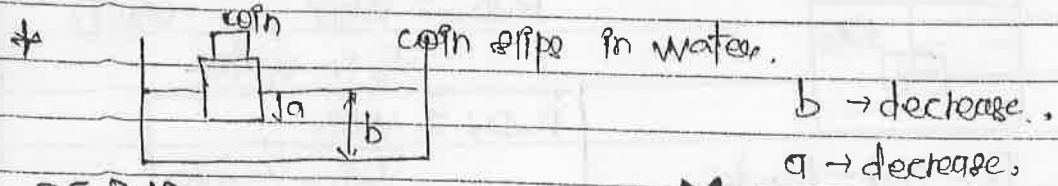 coin
coin slips in water.
a
b
b → decrease.
a → decrease.